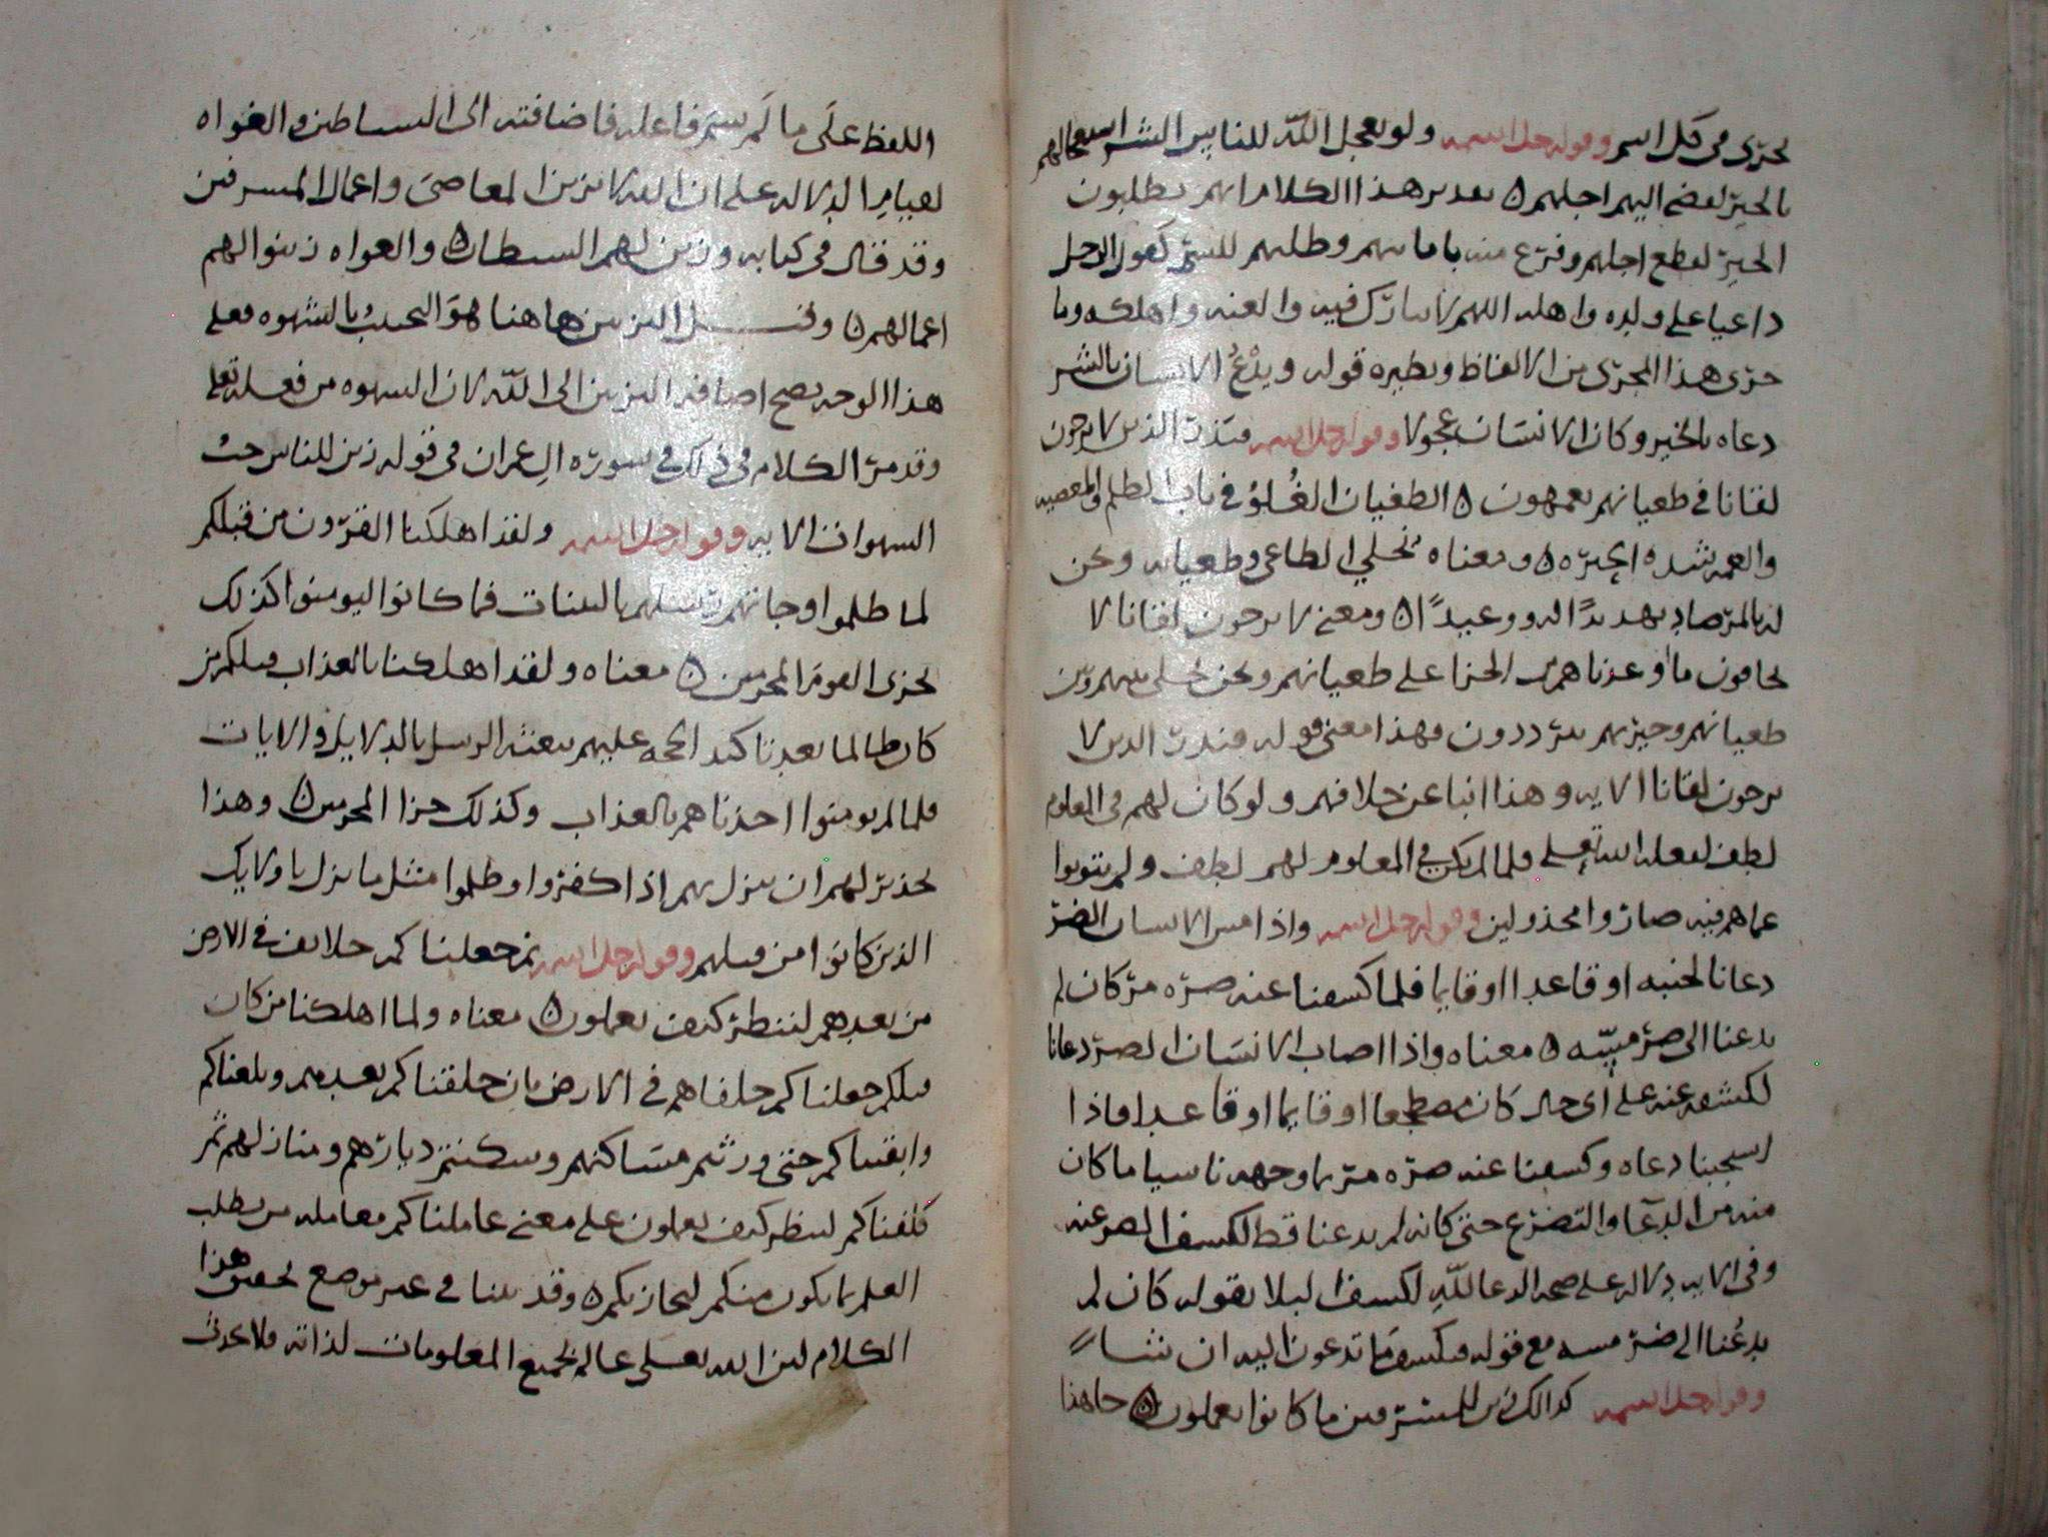 تجري في كل اسم وقوله جل اسمه ولو يعجل الله للناس الشر استعجالهم
بالخير لقضي اليهم اجلهم ه تقدير هذا الكلام انهم يطلبون
الخير لقطع اجلهم وفرغ منه باماتتهم وطلبهم للشر كقول الرجل
داعيا على ولده واهله اللهم لا تبارك فيه والعنه واهلكه وما
جرى هذا المجرى من الالفاظ ونظيره قوله ويدْعُ الانسان بالشر
دعاه بالخير وكان الانسان عجولا وقوله جل اسمه فنذر الذين لا يرجون
لقانا في طغيانهم يعمهون ه الطغيان الغُلوُ في باب الظلم والمعصيه
والعمه شده الحيره ه ومعناه نخلي الطاغي وطغيانه ونحن
له بالمرصاد تهديدًا له ووعيدًا ه ومعنى لا يرجون لقانا لا
يخافون ما اوعدناهم من الجزا على طغيانهم ونحن نخلي بينهم وبين
طغيانهم وحيرتهم يترددون فهذا معنى قوله فنذر الذين لا
يرجون لقانا الايه وهذا انبا عن خلافهم ولو كان لهم في المعلوم
لطف لفعله الله تعلى فلما لم يكن في المعلوم لهم لطف ولم يتوبوا
عما هم فيه صاروا مخذولين وقوله جل اسمه واذا مس الانسان الضر
دعانا لجنبه او قاعدا او قايما فلما كشفنا عنه ضره مر كان لم
يدعنا الى ضر مسّه ه معناه واذا اصاب الانسان الضر دعانا
لكشفه عنه على اي حال كان مضطجعا او قايما او قاعدا فاذا
استجبنا دعاه وكشفنا عنه ضره مر لوجهه ناسيا ما كان
منه من الدعا والتضرع حتى كانه لم يدعنا قط لكشف الضر عنه
وفي الايه دلاله على صحه الدعا لله لكشف البلا بقوله كان لم
يدعُنا الى ضر مسه مع قوله فيكشف ما تدعون اليه ان شاء
وقوله جل اسمه كذالك زين للمسرفين ما كانوا يعملون ه جا هذا
اللفظ على ما لَم يسمّ فاعله فاضافته الى الشياطين والغواه
لقيام الدلاله على ان الله لا يزين المعاصي واعمال المسرفين
وقد قال في كتابه وزين لهم الشيطان ه والغواه زينوا لهم
اعمالهم ه وقيل التزيين هاهنا هو التحبيب بالشهوه فعلى
هذا الوجه يصح اضافه التزيين الى الله لان الشهوه من فعله تعلى
وقد مرّ الكلام في ذلك في سوره ال عمران في قوله زين للناس حب
الشهوات الايه وقوله جل اسمه ولقد اهلكنا القرون من قبلكم
لما ظلموا وجاتهم رسلهم بالبينات فما كانوا ليومنوا كذلك
نجزي القوم المجرمين ه معناه ولقد اهلكنا بالعذاب قبلكم من
كان ظالما بعد تاكيد الحجه عليهم ببعثه الرسل بالدلايل والايات
فلما لم يومنوا اخذناهم بالعذاب وكذلك جزا المجرمين ه وهذا
تحذير لهم ان ينزل بهم اذا كفروا وظلموا مثل ما نزل باولايك
الذين كانوا من قبلهم وقوله جل اسمه ثم جعلناكم خلايف في الارض
من بعدهم لننظر كيف تعملون ه معناه ولما اهلكنا من كان
قبلكم جعلناكم خلفاهم في الارض بان خلقناكم بعدهم وبلغناكم
وابقيناكم حتى ورثتم مساكنهم وسكنتم ديارهم ومنازلهم ثم
كلفناكم لننظر كيف تعملون على معنى عاملناكم معامله من يطلب
العلم بما يكون منكم ليجازيكم ه وقد بينا في غير موضع تحقيق هذا
الكلام لان الله تعلى عالم بجميع المعلومات لذاته فلا يحدث